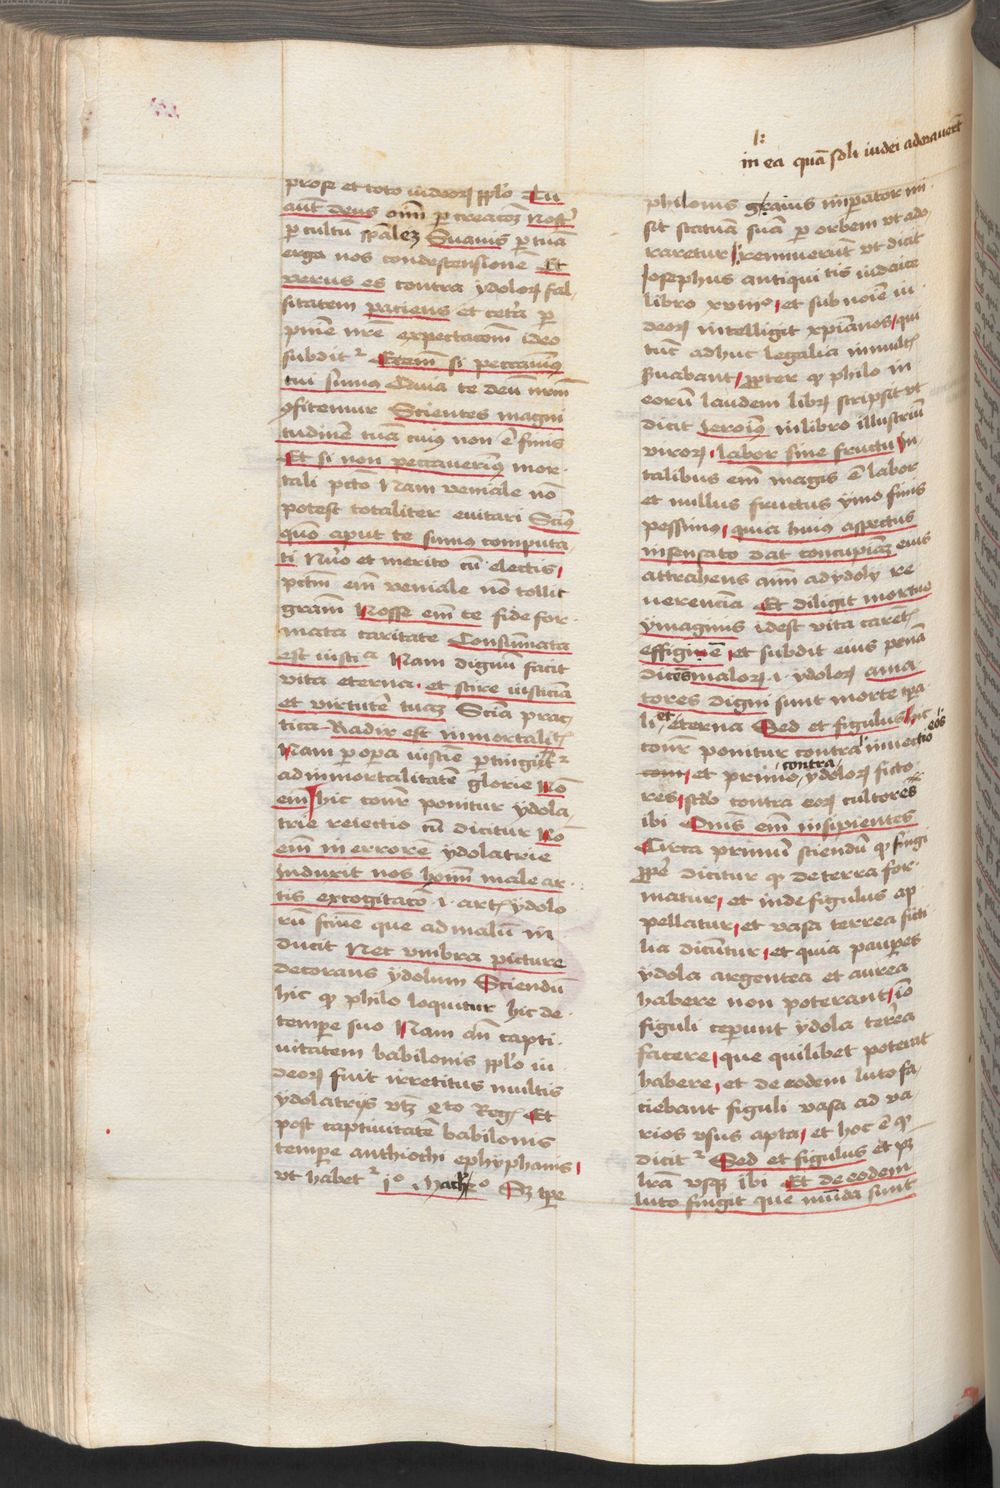 in ea quā soli iudei adorauerūt
prose et toto iudeorꝫ pplo Tu
aūt deus om̄ p creacōꝫ Noster
p cultū spālez Suauis p tuā
erga nos condescensionē Et
verus es contra ydolorꝫ fal
sitatem paciens et cetā p
pniē nr̄e expectacōm ideo
subditr Etem̄ si peccauimꝰ
tui sumꝰ Quia te deū nrm̄
ꝯfitemur Scientes magni
tudinē tuā cuiꝰ non ē finis
Et si non peccauerimꝰ mor
tali pctō Nam veniale nō
potest totaliter euitari Scimꝰ
qm̄o aput te sumꝰ computa
ti Nūo et merito cū electis
pctm̄ em̄ veniale nō tollit
gram̄ Nosse em̄ te fide for
mata caritate Consūmata
est iusticia Nam dignū facit
vita eterna et scire iusticiā
et virtutē tuaꝫ Scīa prac
tica Radix est inmortalitꝭ
Nam p opa iusticie ptingūtr
ad inmortalitatē glorie Nō
em̄ hic conr ponitur ydola
trie reiectio cū dicitur Nō
em̄ in errorē ydolatrie
Induxit nos hoīm male ar
tis excogitacō .i. artꝭ ydolo
rū scīue que ad malū in
ducit Nec vmbra picture
decorans ydolum Sciendū
hic qꝫ philo loquitur hic de
tempe suo Nam an̄ capti
uitatem babilonis pplo iu
deorꝫ fuit irretitus multis
ydolatrijs vtꝫ 4to Regꝫ Et
post captiuitatē babilonis
tempe anthiochi ephyphanis
vt habetr jo Mach Sꝫ tpe
philonis gaius imperator mi
sit statuā suā p orbem vt ado
raretur renuuerūt vt dicit
Josephus antiquitatis iudaice
libro xviiio et sub noīe iu
deorꝫ intelligit xpianos qui
tūc adhuc legalia in multꝭ
suabant ppter qꝫ philo in
eorū laudem librꝫ scripsit vt
dicit Jeroimꝰ in libro illustriū
virorꝫ labor sine fructu In
talibus em̄ magis ē labor
et nullus fructus ymo finis
pessimꝰ quia huiꝰ aspectus
insensato dat concupiaꝫ eius
attrahens aīm ad ydolꝫ re
uerenciā Et diligit mortue
ymaginis idest vita carētꝭ
effigiē et subdit eius penā
dicēs malorꝫ .i. ydolorꝫ ama
tores digni sunt morte tpa
li et eterna Sed et figulus hic
conr ponitur contra eos inuectio
et primo contra ydolorꝫ ficto
res scdo contra eorꝫ cultores
ibi Omīs em̄ insipientes
Circa primū sciendū qꝫ fingi
ppe dicitur qꝫ de terra for
matur et inde figulus ap
pellatur et vasa terrea ficti
lia dicuntur et quia paupes
ydola argentea et aurea
habere non poterant iō
figuli ceperunt ydola terrea
facere que quilibet poterat
habere et de eodem luto fa
ciebant figuli vasa ad va
rios vsus apta et hoc ē qꝫ
dicitr Sed et figulus et pꝫ
lrā vsqꝫ ibi Et de eodem
luto fingit que mūda sunt